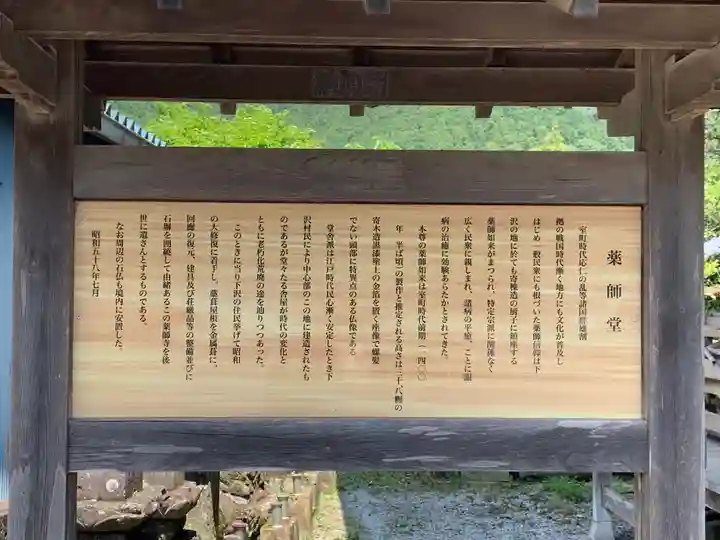 薬師堂
室町時代応仁の乱等諸国群雄割
拠の戦国時代漸く地方にも文化が普及し
はじめ一般民衆にも根づいた薬師信仰は下
沢の地に於ても寄棟造の厨子に鎮座する
薬師如来がまつられ、特定宗派に関係なく
広く民衆に親しまれ、諸病の平癒、ことに眼
病の治癒に効験あらたかとされてきた。
本尊の薬師如来は室町時代前期(一四〇〇
年 半ば頃)の製作と推定される高さは三十.八糎の
寄木造黒漆座上の金箔を置く座像で螺髪
でない頭部に特異点のある仏像である
堂舎派は江戸時代民心漸く安定したとき下
沢村民により中心部のこの地に建造されたも
のであるが堂々たる舎屋が時代の変化と
ともに老朽化荒廃の途を辿りつつあった。
このときに当り下沢の住民挙げて昭和
の大修復に着手し、藁葺屋根を金属葺に、
回廊の復元、建具及び荘厳品等の整備並びに
石塀を囲繞して由緒あるこの薬師寺を後
世に遺さんとするものである。
なお周辺の石仏も境内に安置した。
昭和五十八年七月